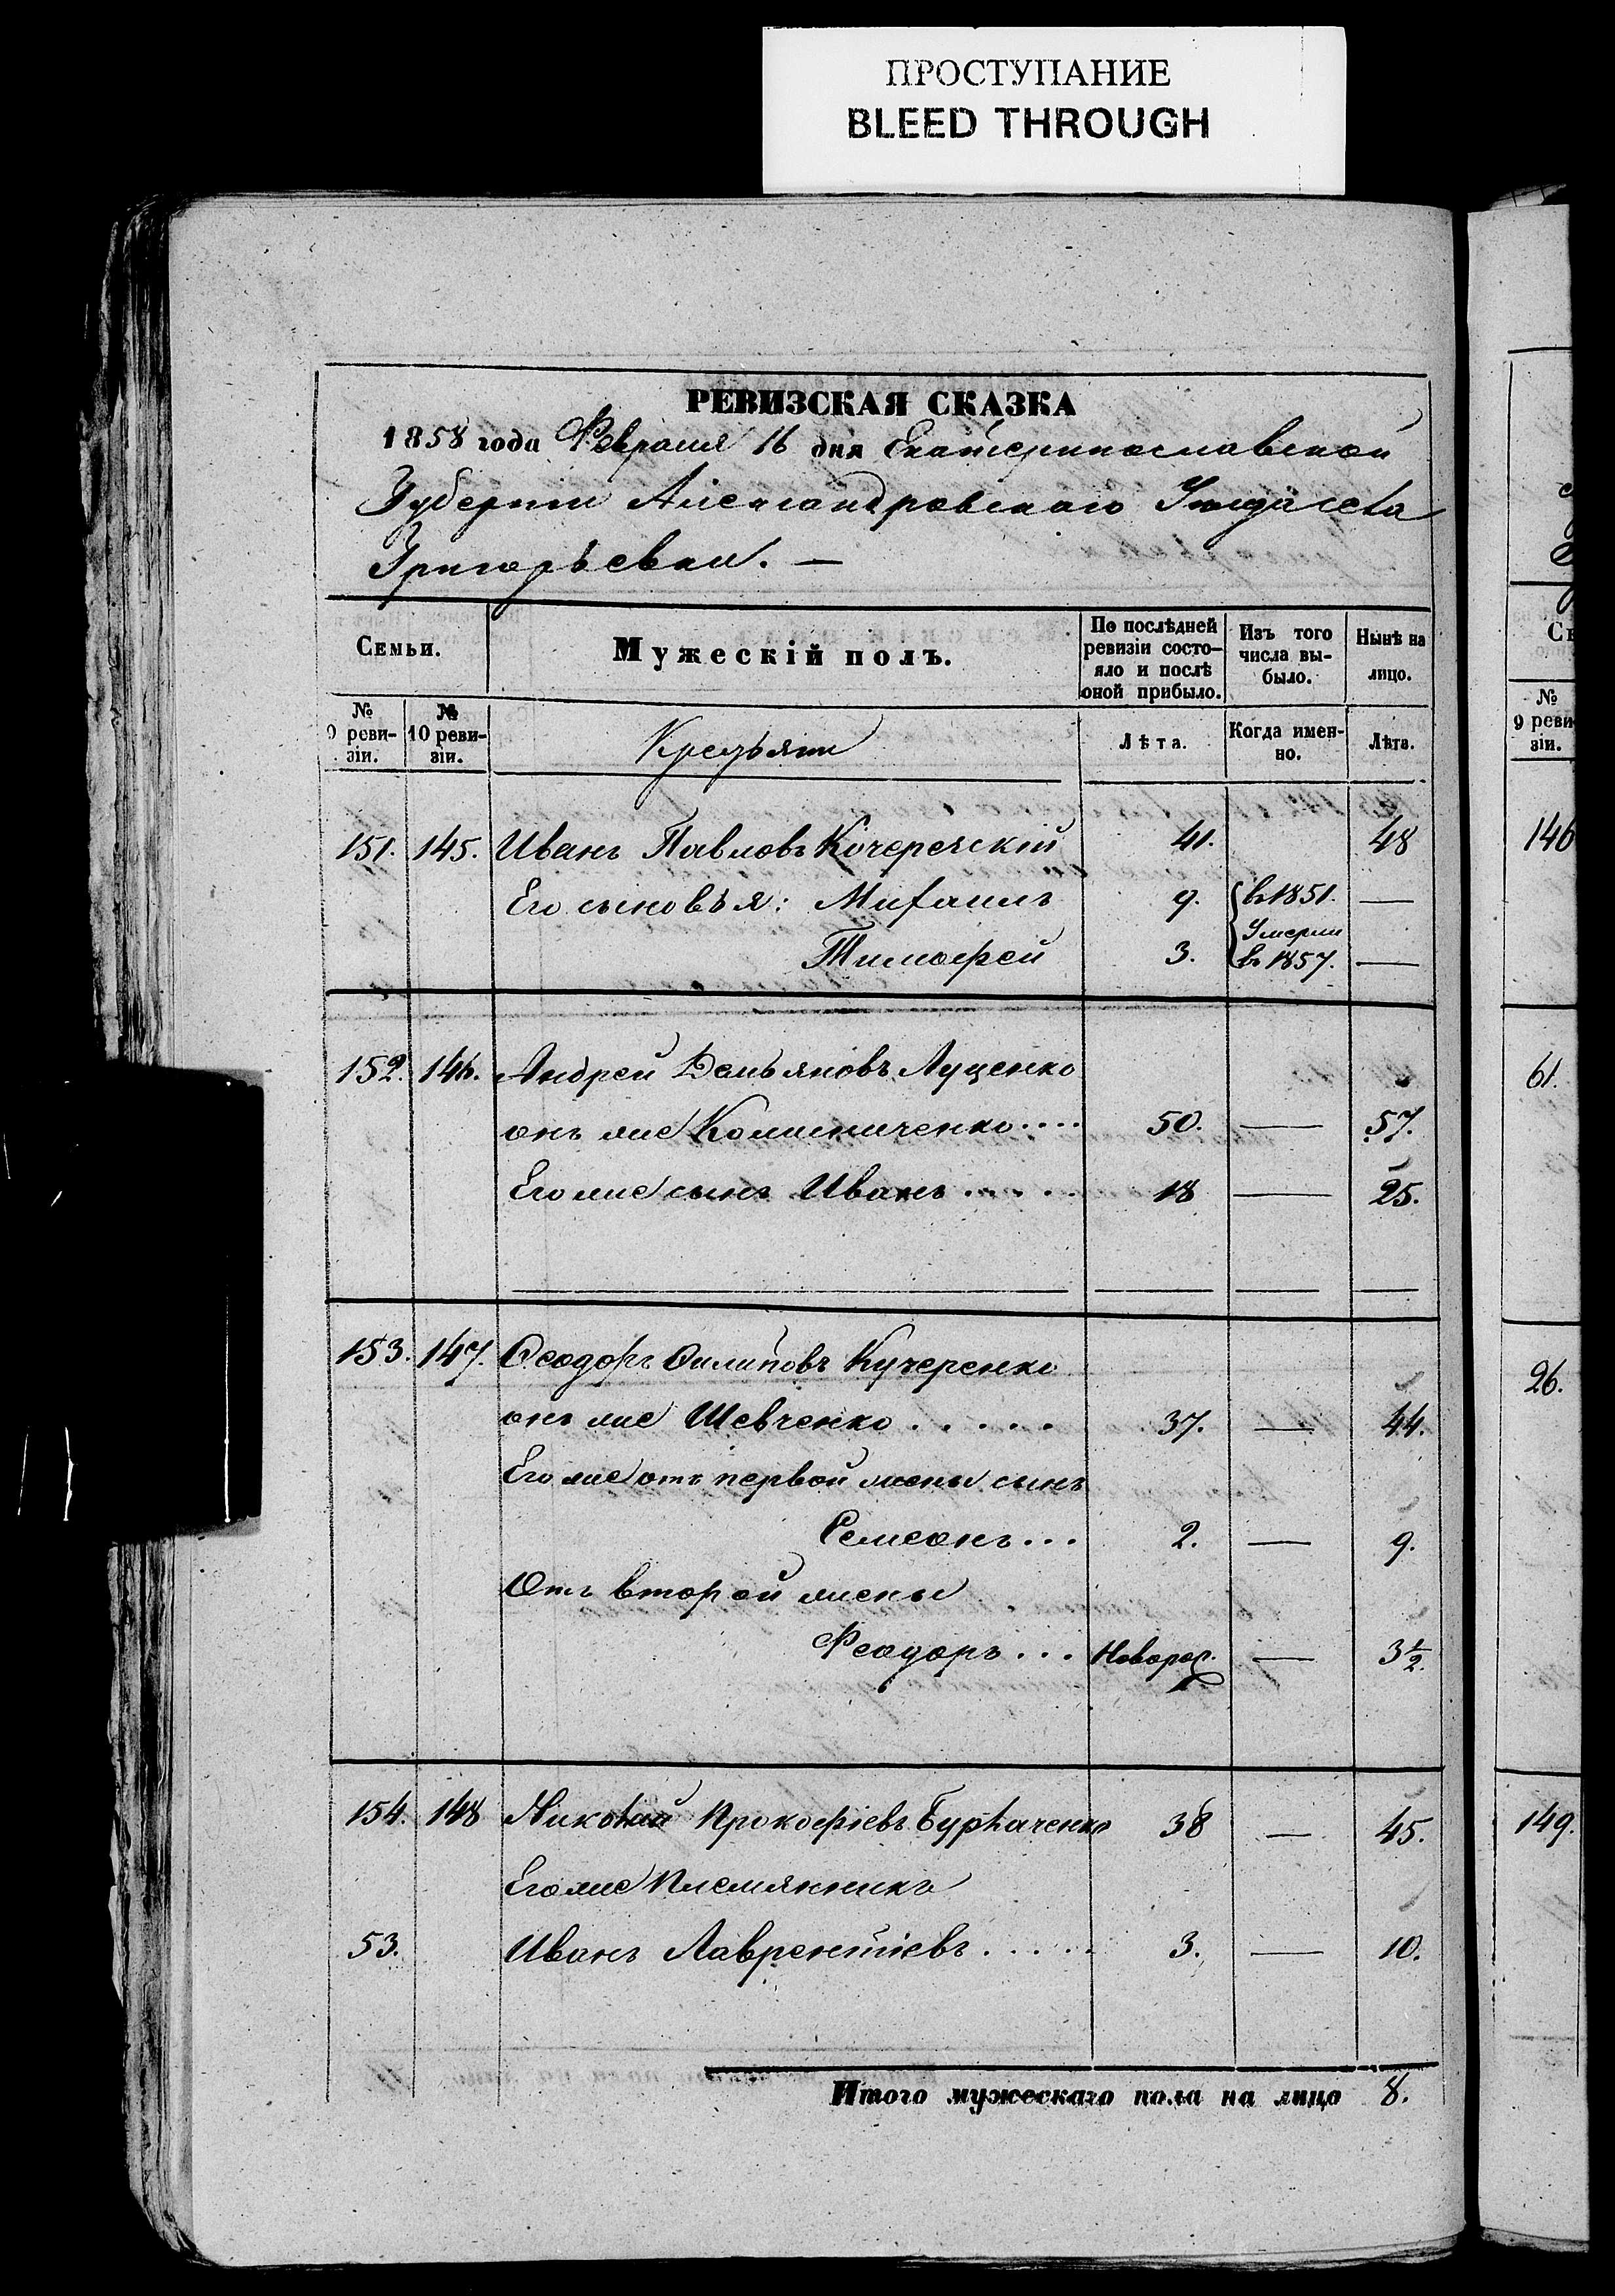 ПРОСТУПАНИЕ
BLEED THROUGH
РЕВИЗСКАЯ СКАЗКА
1858 года Февраля 16 дня Екатеринославской
Губерніи Александровскаго Уѣзда села
Григорьевки. —
Семьи.
Мужескій полъ.
По послѣдней ревизіи состо-
яло и послѣ оной прибыло.
Изъ того числа вы-
было.
Нынѣ на лицо.
№ 9 реви-
зіи.
№ 10 реви-
зіи.
Крестьяни
Лѣта.
Когда имен-
но.
Лѣта.
151. 145. Иванъ Павловъ Кочережскій 41. 48
Его сыновья: Михаилъ 9. въ 1851. —
Умерли
Тимофей 3. въ 1857. —
152. 146. Андрей Демьяновъ Луценко
онъ же Колисниченко.... 50. — 57.
Его же сынъ Иванъ..... 18 — 25.
153. 147. Ѳеодоръ Ѳилиповъ Кучеренко
онъ же Шевченко..... 37. — 44.
Его же отъ первой жены сынъ
Семеонъ... 2. — 9.
Отъ второй жены
Феодоръ... Новорож. — 3½.
154. 148 Николай Прокофіевъ Бурлаченко 38 — 45.
Его же племянникъ
53. Иванъ Лаврентіевъ..... 3. — 10.
Итого мужескаго пола на лицо 8.
№
9 реви
зіи.
146
61.
26.
149.